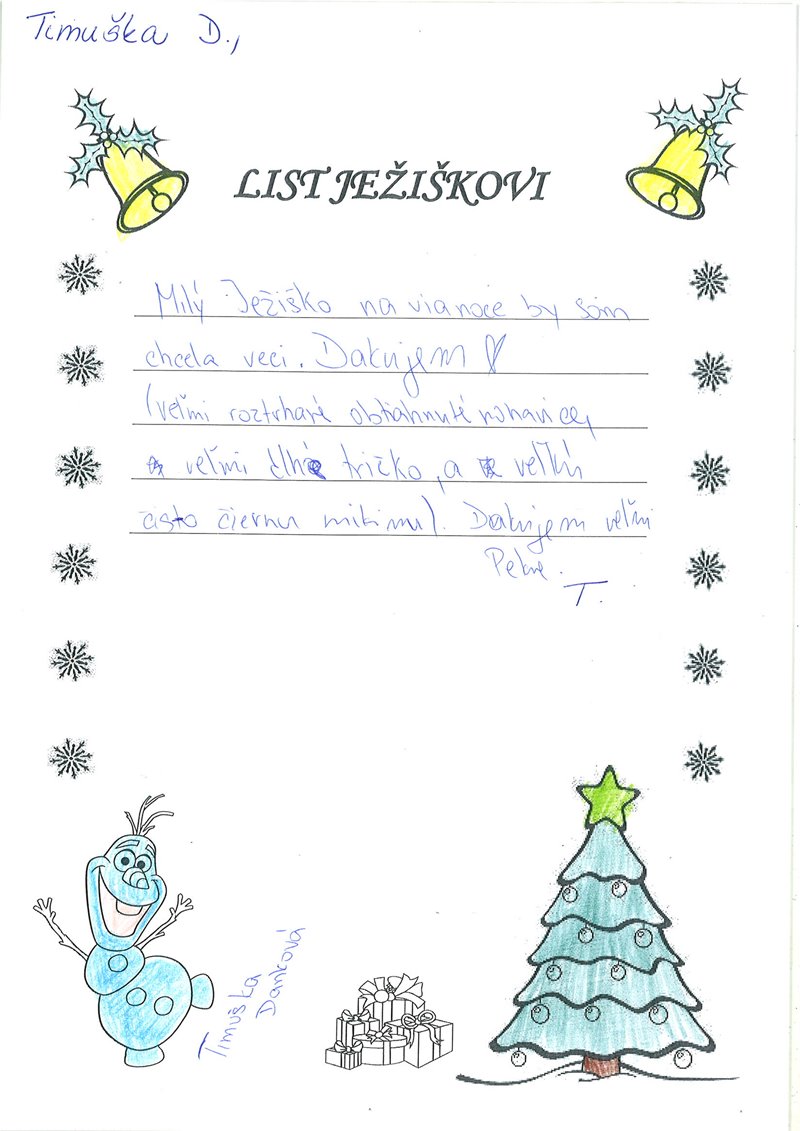 Timuška D.,
LIST JEŽIŠKOVI
Milý Ježiško na vianoce by som
chcela veci. Dakujem
(veľmi roztrhané obtiahnuté nohavice,
veľmi dlhé tričko, a veľkú
čisto čiernu mikinu). Dakujem veľmi
Pekne.
T.
Timuška
Danková